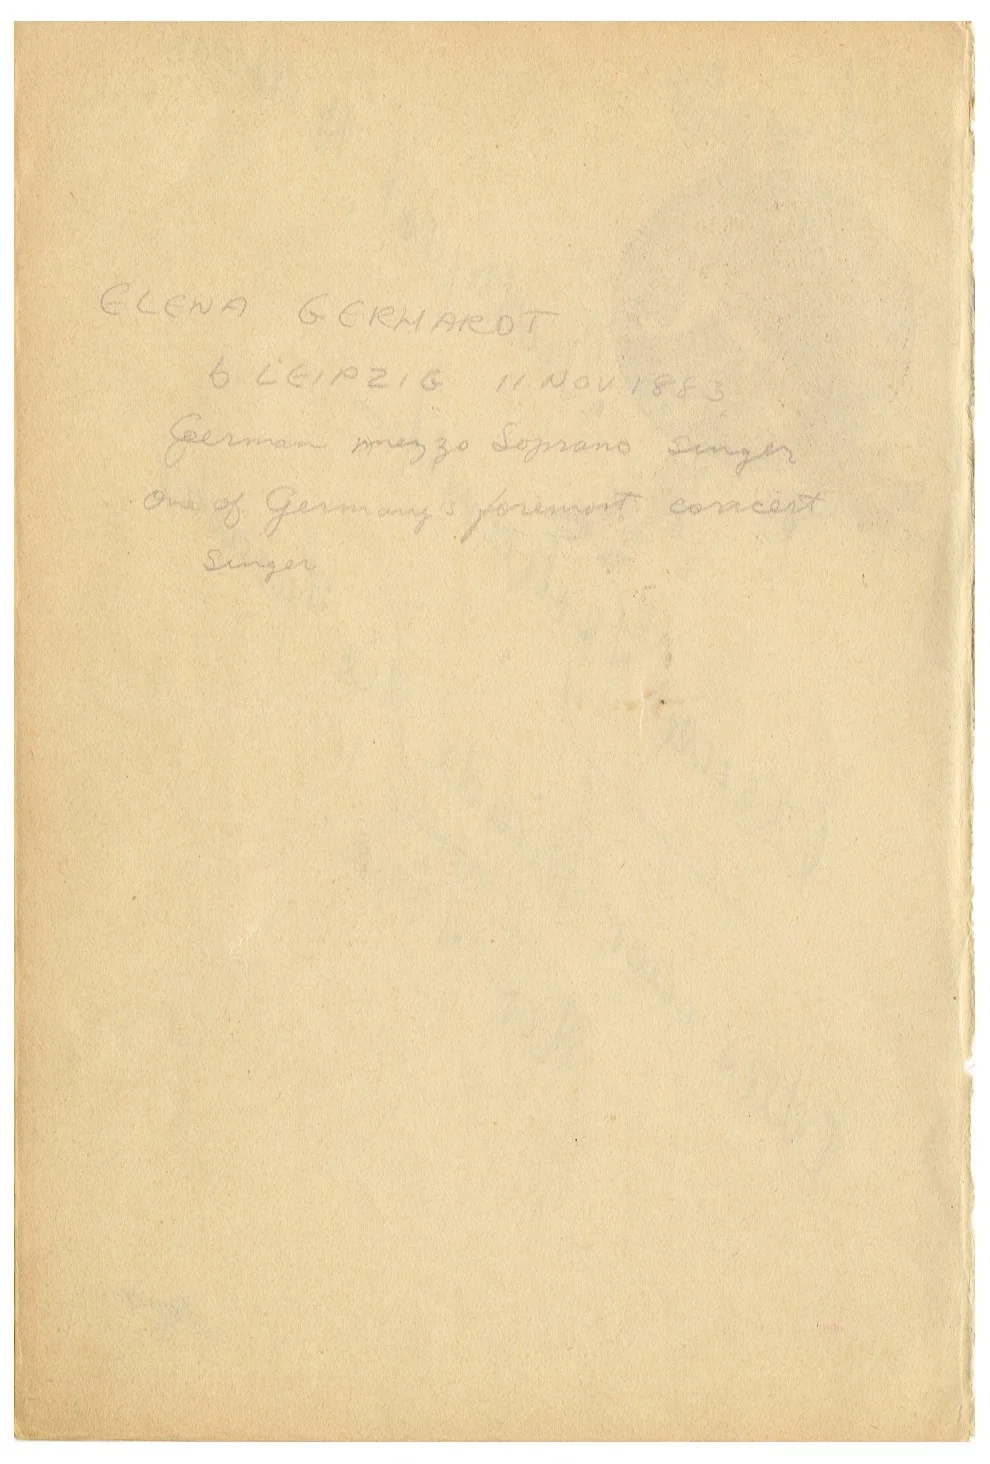 ELENA GERHARDT
b LEIPZIG 11 NOV 1883
German mezzo Soprano singer
One of Germany's foremost concert
singer